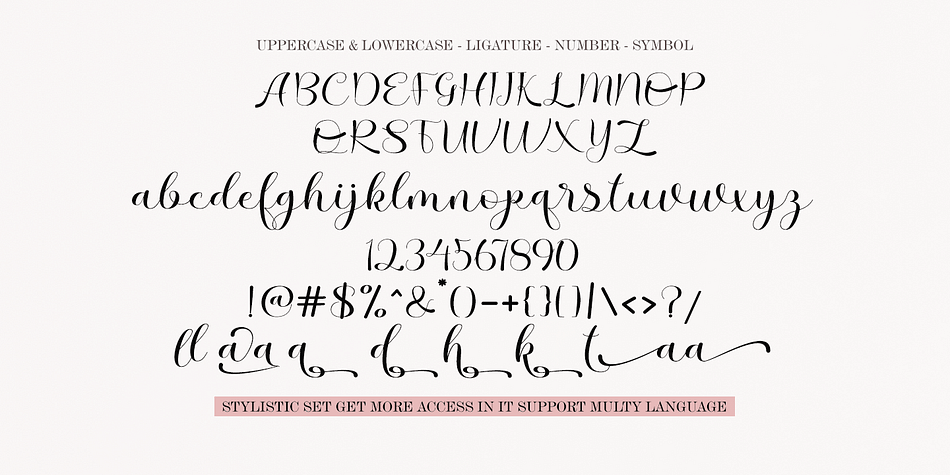 UPPERCASE & LOWERCASE - LIGATURE - NUMBER - SYMBOL
ABCDEFGHIJKLMNOP
QRSTUVWXYZ
abcdefghijklmnopqrstuvwxyz
1234567890
!@#$%^&*()-+{}()|\<>?/
ll a a q d h k t a a
STYLISTIC SET GET MORE ACCESS IN IT SUPPORT MULTY LANGUAGE